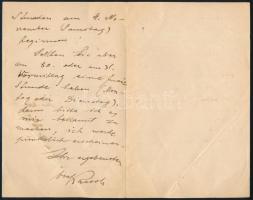 Stunden am 4. No-
vember Samstag)
beginnen!
Sollten Sie aber
am 30. oder am 31.
Vormittag eine freie
Stunde haben (Mon-
tag oder Dienstag),
dann bitte ich es
mir bekannt zu
machen, ich werde
pünktlich erscheinen.
Ihr ergebenster